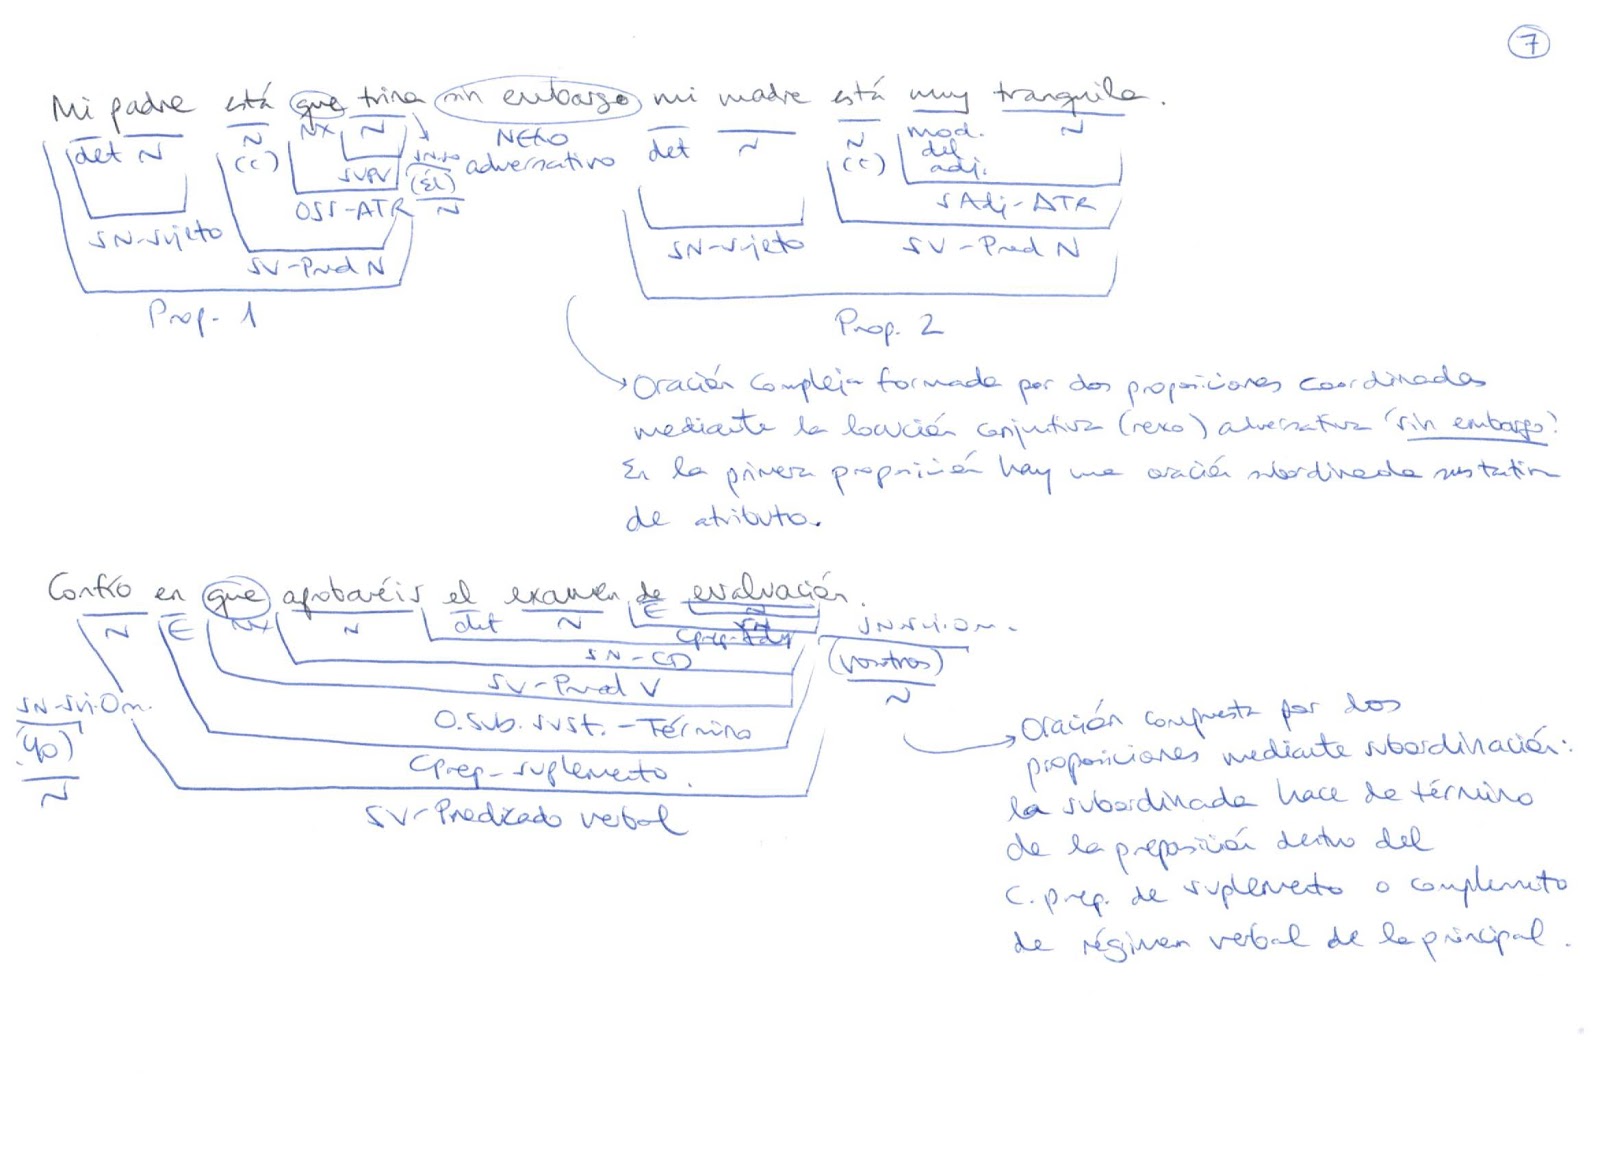 7
Mi padre está que trina sin embargo mi madre está muy tranquila.
det N N NX N NEXO det N N mod. N
(c) SN-su adversativo (c) del
SPV (Él) adj.
OSS-ATR N SAdj-ATR
SN-sujeto SN-sujeto SV-Pred N
SV-Pred N
Prop. 1 Prop. 2
Oración compleja formada por dos proposiciones coordinadas
mediante la locución conjuntiva (nexo) adversativa "sin embargo".
En la primera proposición hay una oración subordinada sustantiva
de atributo.
Confío en que aprobaréis el examen de evaluación.
N E NX N det N E N SN Suj. Om.
Cprep-Ady (vosotros)
SN-CD N
SV-Pred V
SN-Suj. Om. O.Sub.sust.-Término
(yo) Cprep-suplemento.
N SV-Predicado verbal
Oración compuesta por dos
proposiciones mediante subordinación:
la subordinada hace de término
de la preposición dentro del
C.prep. de suplemento o complemento
de régimen verbal de la principal.